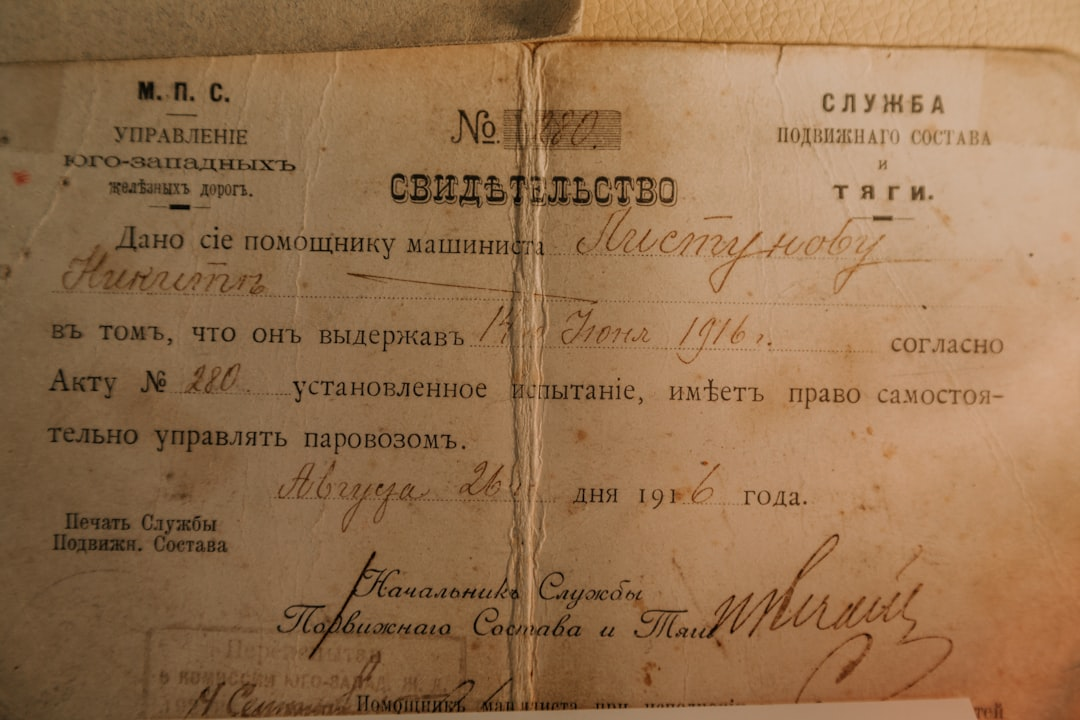 М. П. С.
УПРАВЛЕНІЕ
ЮГО-ЗАПАДНЫХЪ
желѣзныхъ дорогъ.
№ 280.
СВИДѢТЕЛЬСТВО
СЛУЖБА
ПОДВИЖНАГО СОСТАВА
И
ТЯГИ.
Дано сіе помощнику машиниста Листунову
Никитѣ
въ томъ, что онъ выдержавъ Іюня 1916 г. согласно
Акту № 280. установленное испытаніе, имѣетъ право самостоя-
тельно управлять паровозомъ.
Августа 26 дня 1916 года.
Печать Службы
Подвижн. Состава
Начальникъ Службы
Подвижнаго Состава и Тяги
в комиссии ЮГО-ЗАПАД. Ж. Д.
Помощникъ машиниста при